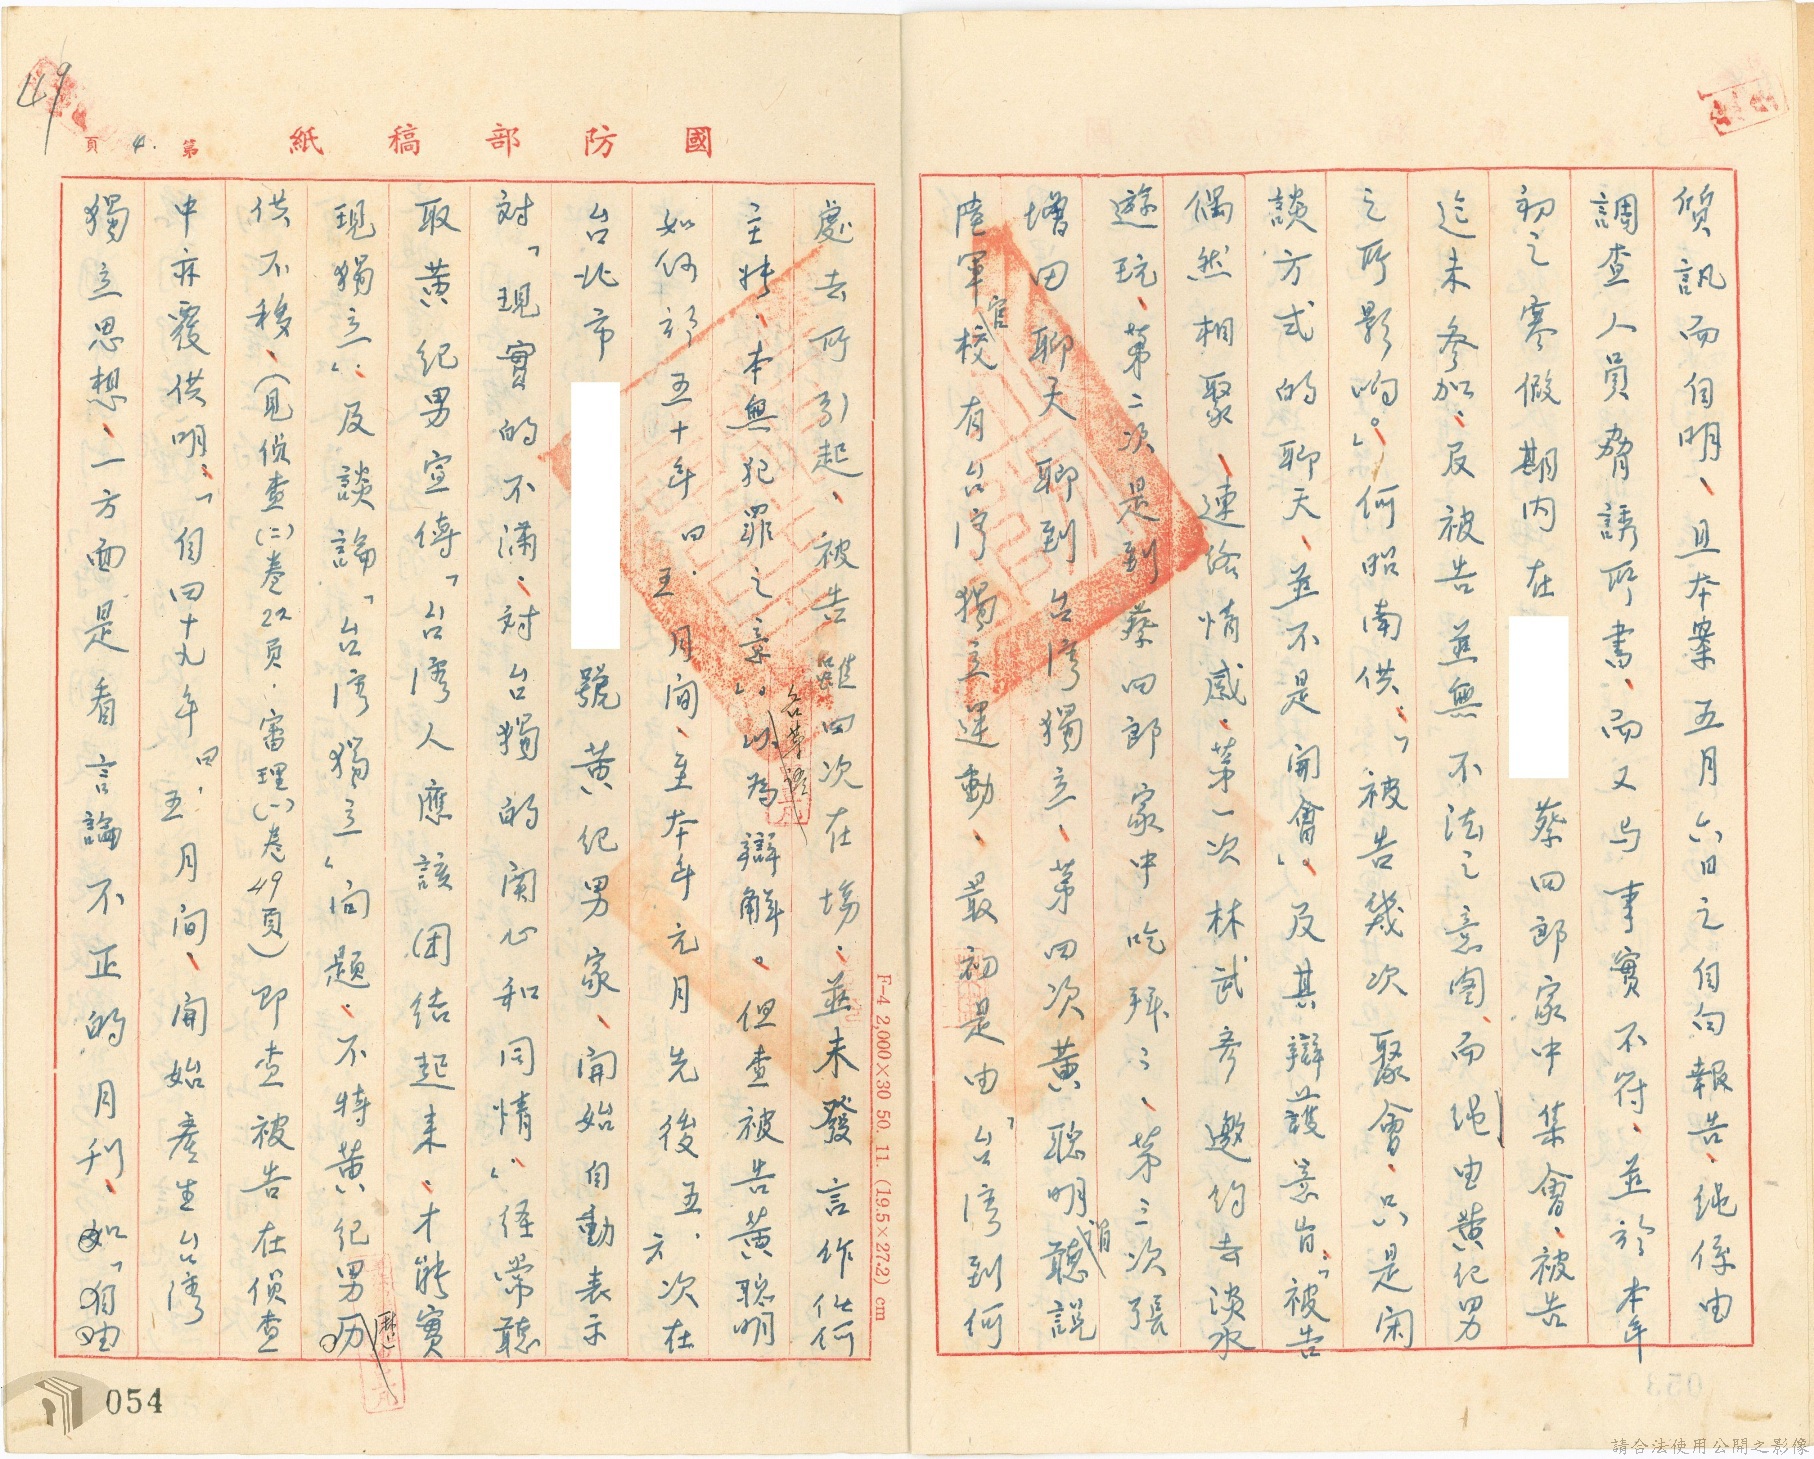 質訊而自明、且本案五月六日之自白報告、純係由
調查人員脅誘所書、而又与事實不符、並於本年
初之寒假期内在蔡四郎家中集會、被告
迄未參加、及被告並無不法之意圖、而純由黃紀男
之所影响。」何昭南供：「被告幾次聚會、只是闲
談方式的聊天、並不是開會」。及其辯護意旨：「被告
偶然相聚、連絡情感、第一次林武彥邀约去淡水
遊玩、第二次是到蔡四郎家中吃拜々、第三次張
增田聊天聊到台湾獨立、第四次黃聰明聽說
陸軍官校有台湾獨立運動、最初是由「台湾到何
國防部稿紙
第4.頁
處去所引起、被告雖四次在場、並未發言作任何
主持、本無犯罪之意」。以為辯解。但查被告黃聰明
如何於五十年四、五月間、至本年元月先後五、六次在
台北市號黃紀男家、開始自動表示
対「現實的不滿、対台獨的関心和同情」、経常聽
取黃紀男宣傳「台湾人應該団结起来、才能實
現獨立」、及談論「台湾獨立」问题、不特黃紀男历
供不移、(見偵查(二)卷22頁、審理(一)卷49頁)即查被告在偵查
中亦覆供明：「自四十九年四、五月间、開始產生台湾
獨立思想、一方面是看言論不正的月刊、如「自由
49
054
F-4 2,000×30 50. 11. (19.5×27.2) cm
請合法使用公開之影像